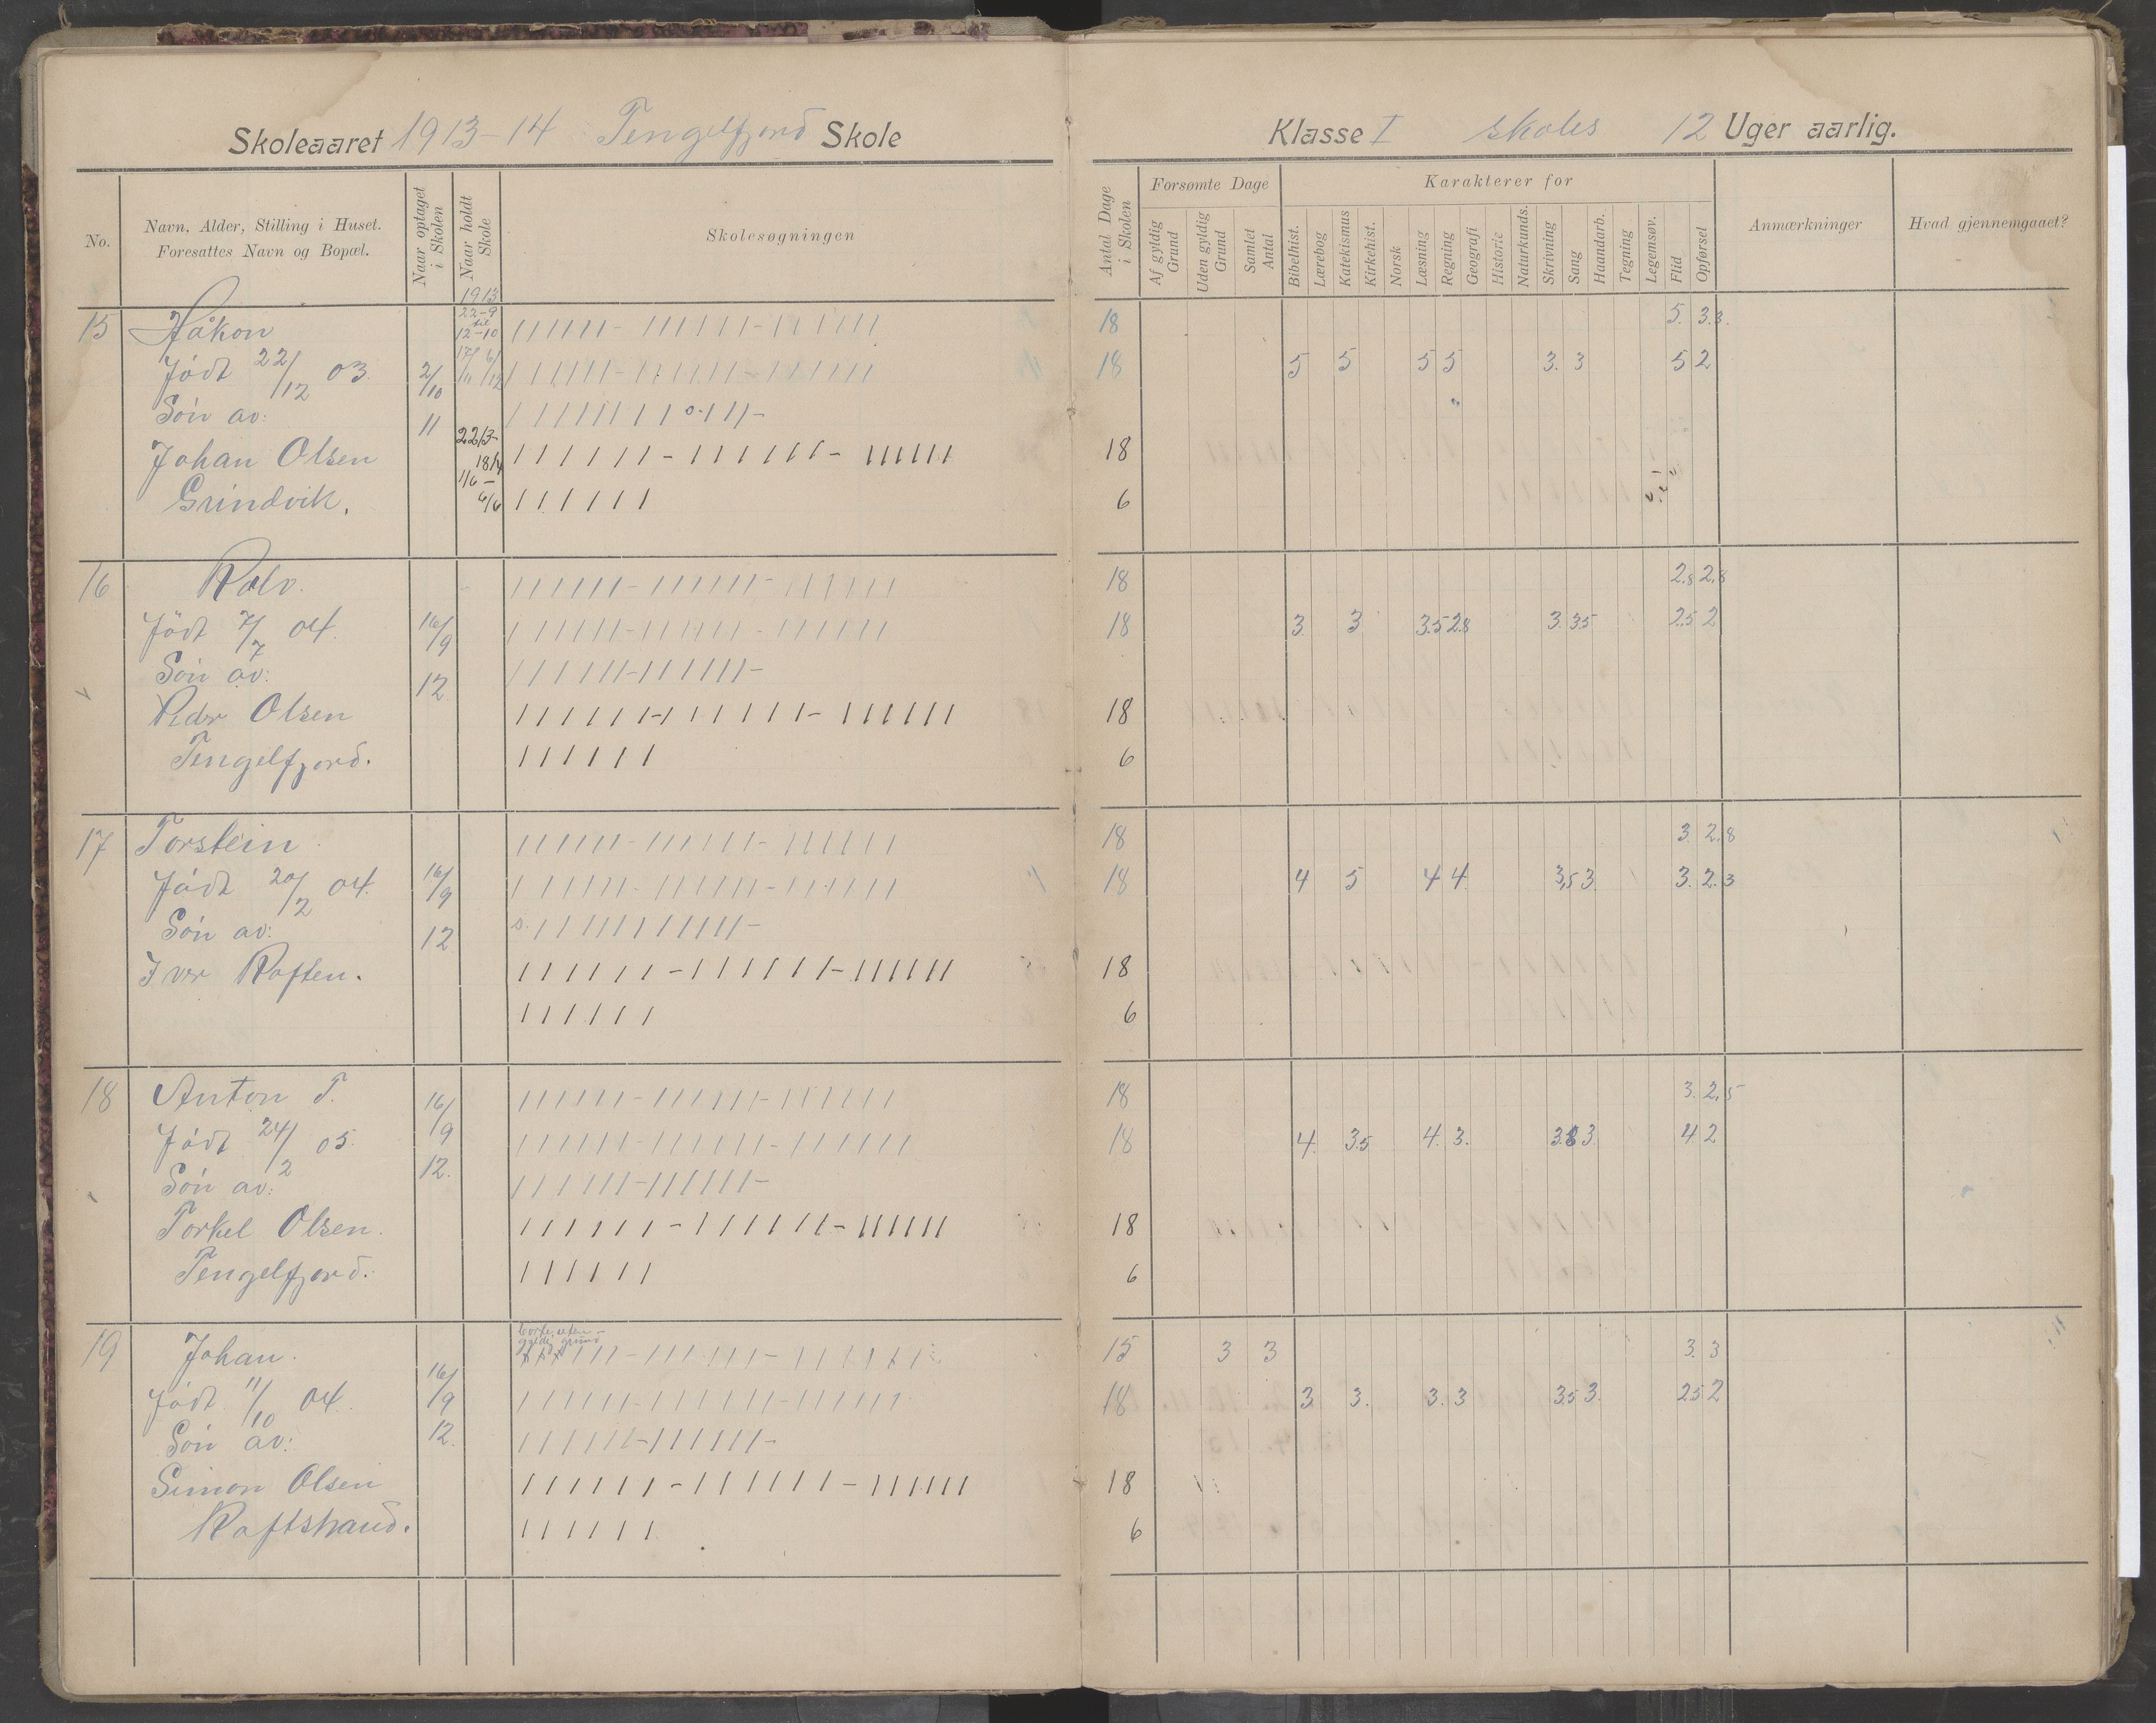 Skoleaaret 1913-14 Tengelfjord Skole
Klasse I skoles 12 Uger aarlig.
No.
Navn, Alder, Stilling i Huset.
Foresattes Navn og Bopæl.
Naar optaget
i Skolen
Naar holdt
Skole
Skolesøgningen
Antal Dage
i Skolen
Forsømte Dage
Af gyldig
Grund
Uden gyldig
Grund
Samlet
Antal
Karakterer for
Bibelhist.
Lærebog
Katekismus
Kirkehist.
Norsk
Læsning
Regning
Geografi
Historie
Naturkunds.
Skrivning
Sang
Haandarb.
Tegning
Legemsøv.
Flid
Opførsel
Anmærkninger
Hvad gjennemgaaet?
1913
15 Håkon 22-9 til 12-10 18 5. 3.3.
Födt 22/12 03 2/10 17/11 6/12 18 5 5 5 5 3. 3 5 2
Sön av: 11
Johan Olsen 22/3- 18/4 18
Grindvik. 1/6 - 6/6 6
16 Rolv. 18 2.8 2.8
Födt 7/7 04. 16/9 18 3 3 3.5 2.8 3. 3.5 2.5 2
Sön av: 12
Peder Olsen 18
Tengelfjord. 6
17 Torstein 18 3 2.8
Födt 20/2 04. 16/9 18 4 5 4 4 3,5 3 3. 2.3
Sön av: 12 s.
Iver Raften. 18
6
18 Anton T. 16/9 18 3. 2.5
Födt 24/2 05. 12. 18 4. 3.5 4. 3. 3.8 3 4 2
Sön av:
Torkel Olsen. 18
Tengelfjord. 6
19 Johan. borte uten gyldig grund 15 3 3 3. 3
Födt 11/10 04. 16/9 18 3 3. 3. 3 3.5 3. 2.5 2
Sön av: 12.
Simon Olsen 18
Raftstrand. 6